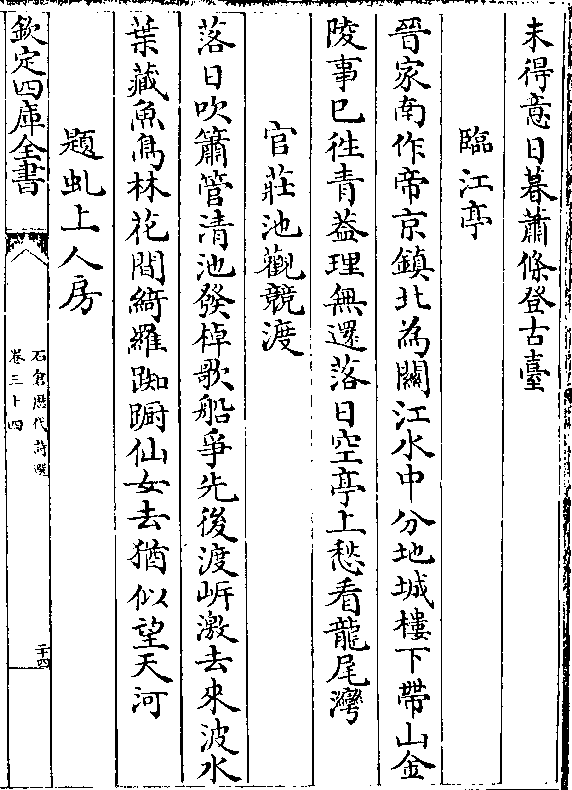 未得意日暮蕭條登古臺
臨江亭
晉家南作帝京鎮北為關江水中分地城樓下帶山金
陵事已徃青葢理無還落日空亭上愁看龍尾灣
官莊池觀競渡
落日吹簫管清池發棹歌船爭先後渡岍激去來波水
葉藏魚鳥林花間綺羅踟蹰仙女去猶似望天河
題虬上人房
欽定四庫全書
石倉歷代詩選
卷三十四
二十四